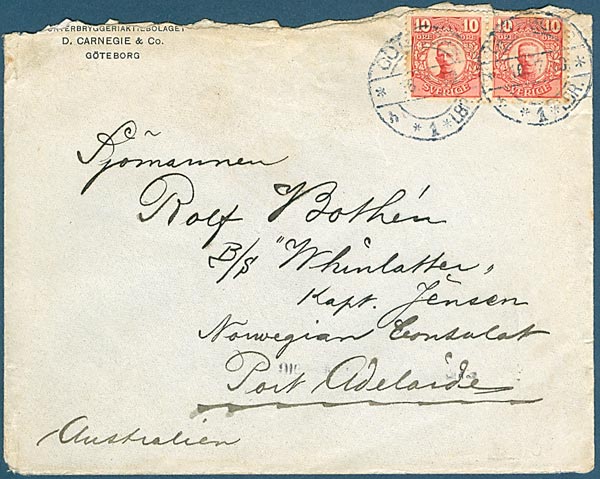 PORTERBRYGGERIAKTIEBOLAGET
D. CARNEGIE & Co.
GÖTEBORG
10 10
ÖRE ÖRE
SVERIGE
10 10
ÖRE ÖRE
SVERIGE
Sjömannen
Rolf Bothén
B/S "Whinlatter"
Kapt. Jensen
Norwegian Consulat
Port Adelaide
Australien